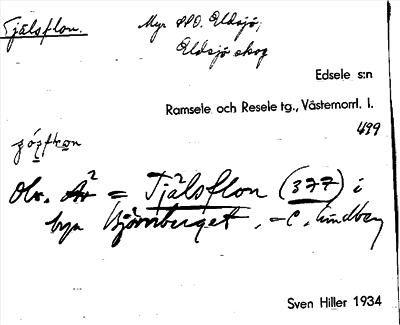 Tjälsflon. Myr SSO. Eldsjö,
Eldsjö skog
Edsele s:n
Ramsele och Resele tg., Västernorrl. l.
499
Obs. 2 = Tjälsflon (377) i
byn Björnberget. - C. Lindberg
Sven Hiller 1934